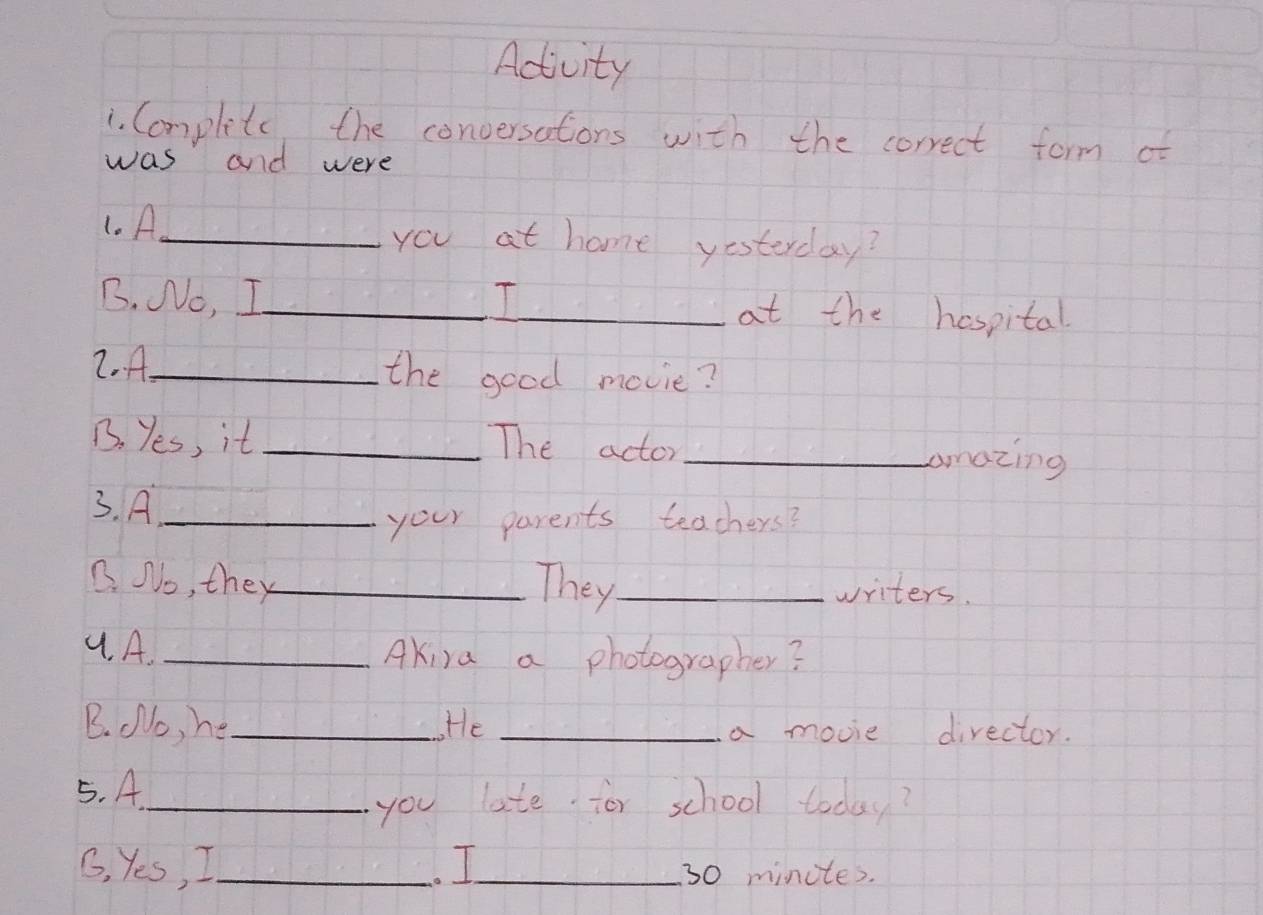 Activity
1. Complete the conversations with the correct form of
was and were
1. A. __________ you at home yesterday?
B. No, I __________ I __________ at the hospital.
2. A. __________ the good movie?
B. Yes, it __________ The actor __________ amazing
3. A. __________ your parents teachers?
B. No, they __________ They __________ writers.
4. A. __________ Akira a photographer?
B. No, he __________. He __________ a movie director.
5. A. __________ you late for school today?
B. Yes, I __________. I __________ 30 minutes.